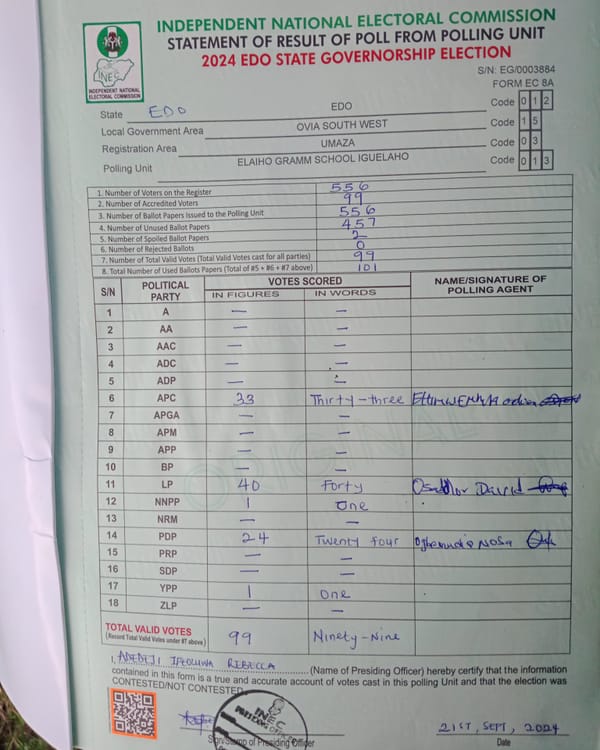 INDEPENDENT NATIONAL ELECTORAL COMMISSION
STATEMENT OF RESULT OF POLL FROM POLLING UNIT
2024 EDO STATE GOVERNORSHIP ELECTION
INEC
INDEPENDENT NATIONAL
ELECTORAL COMMISSION
S/N: EG/0003884
FORM EC 8A
State EDO EDO Code 0 1 2
Local Government Area OVIA SOUTH WEST Code 1 5
Registration Area UMAZA Code 0 3
Polling Unit ELAIHO GRAMM SCHOOL IGUELAHO Code 0 1 3
1. Number of Voters on the Register 556
2. Number of Accredited Voters 99
3. Number of Ballot Papers Issued to the Polling Unit 556
4. Number of Unused Ballot Papers 457
5. Number of Spoiled Ballot Papers 2
6. Number of Rejected Ballots 0
7. Number of Total Valid Votes (Total Valid Votes cast for all parties) 99
8. Total Number of Used Ballots Papers (Total of #5 + #6 + #7 above) 101
S/N POLITICAL PARTY VOTES SCORED NAME/SIGNATURE OF POLLING AGENT
IN FIGURES IN WORDS
1 A — —
2 AA — —
3 AAC — —
4 ADC — —
5 ADP — —
6 APC 33 Thirty-three
7 APGA — —
8 APM — —
9 APP — —
10 BP — —
11 LP 40 Forty David
12 NNPP 1 one
13 NRM — —
14 PDP 24 Twenty four NOSA
15 PRP — —
16 SDP — —
17 YPP 1 one
18 ZLP — —
TOTAL VALID VOTES 99 Ninety-Nine
(Record Total Valid Votes under #7 above)
I, ADEDEJI IPEOLUWA REBECCA (Name of Presiding Officer) hereby certify that the information
contained in this form is a true and accurate account of votes cast in this polling Unit and that the election was
CONTESTED/NOT CONTESTED
INEC
21ST, SEPT, 2024
Sign/Stamp of Presiding Officer Date
ORIGINAL